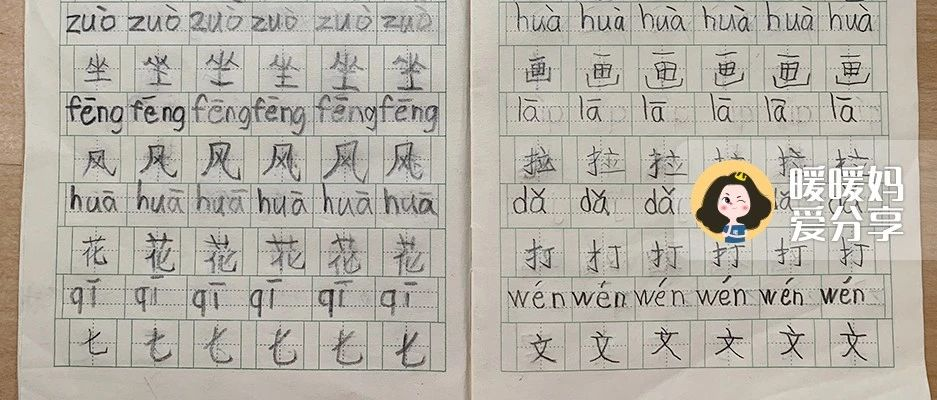 zuò zuò zuò zuò zuò zuò
坐 坐 坐 坐 坐 坐
fēng fēng fēng fēng fēng fēng
风 风 风 风 风 风
huā huā huā huā huā huā
花 花 花 花 花 花
qī qī qī qī qī qī
七 七 七 七 七 七
huà huà huà huà huà huà
画 画 画 画 画 画
lā lā lā lā lā lā
拉 拉 拉 拉 拉 拉
dǎ dǎ dǎ dǎ
打 打 打 打 打 打
wén wén wén wén wén wén
文 文 文 文 文 文
暖暖妈
爱分享